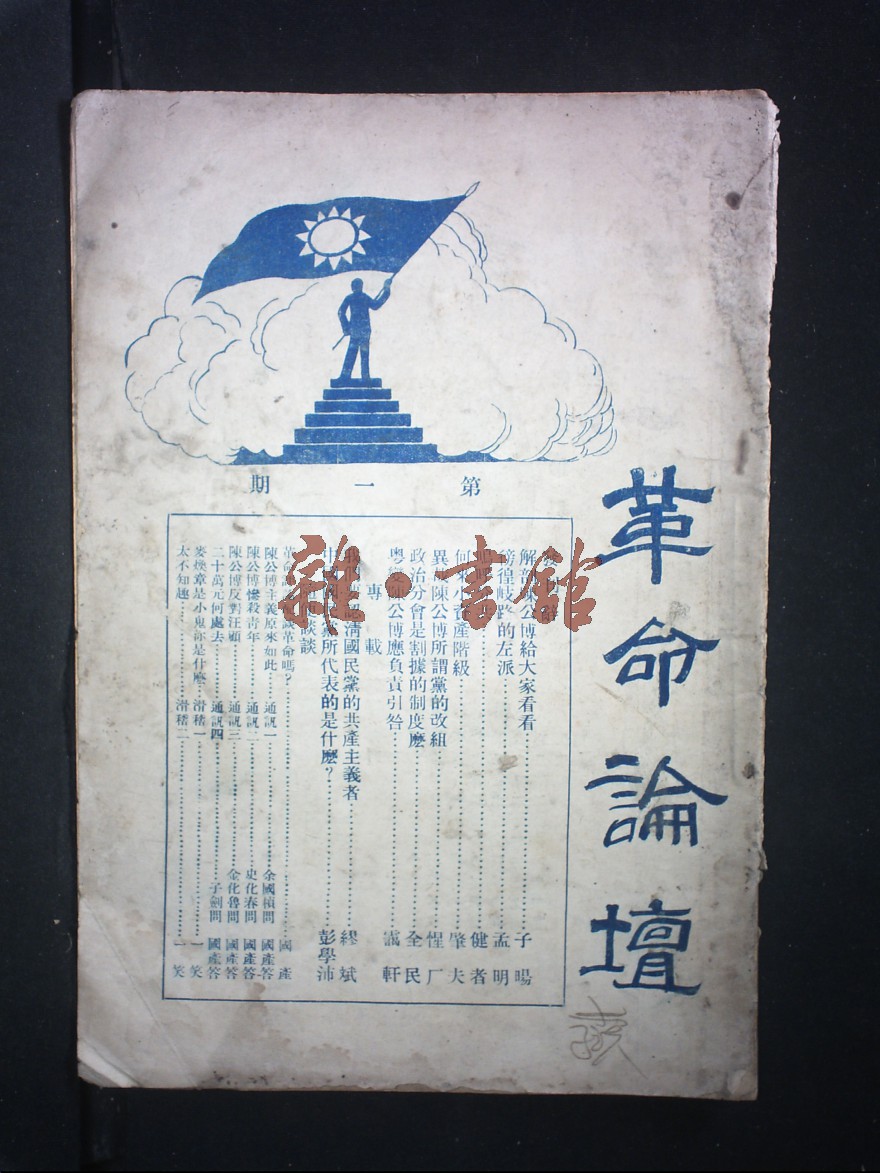 革命論壇
第一期
解剖陳公博給大家看看 子暘
徬徨歧路的左派 孟明
健者
何來小資產階級 肇夫
異哉陳公博所謂黨的改組 惺厂
政治分會是割據的制度麼 全民
粵變陳公博應負責引咎 軒
專載
認清國民黨的共產主義者 繆斌
中國國民黨所代表的是什麼？ 彭學沛
談談
革命 革命嗎？ 國產
陳公博主義原來如此 通訊一 余國楨問 國產答
陳公博慘殺青年 通訊二 史化春問 國產答
陳公博反對汪顧 通訊三 金化魯問 國產答
二十萬元何處去 通訊四 子劍問 國產答
麥煥章是小鬼你是什麼 滑稽一 一笑
太不知趣 滑稽二 一笑
雜·書館